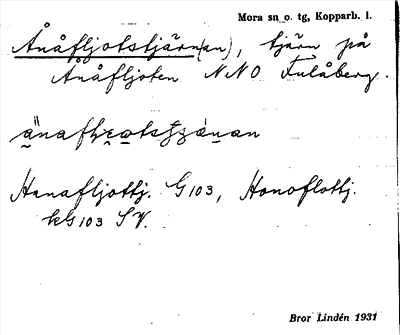 Mora sn o. tg, Kopparb. l.
Ånåfljotstjärn(an), tjärn på
Ånåfljoten NNO Fulåberg.
Hanafljottj. G103, Honoflottj.
kG103 SV.
Bror Lindén 1931